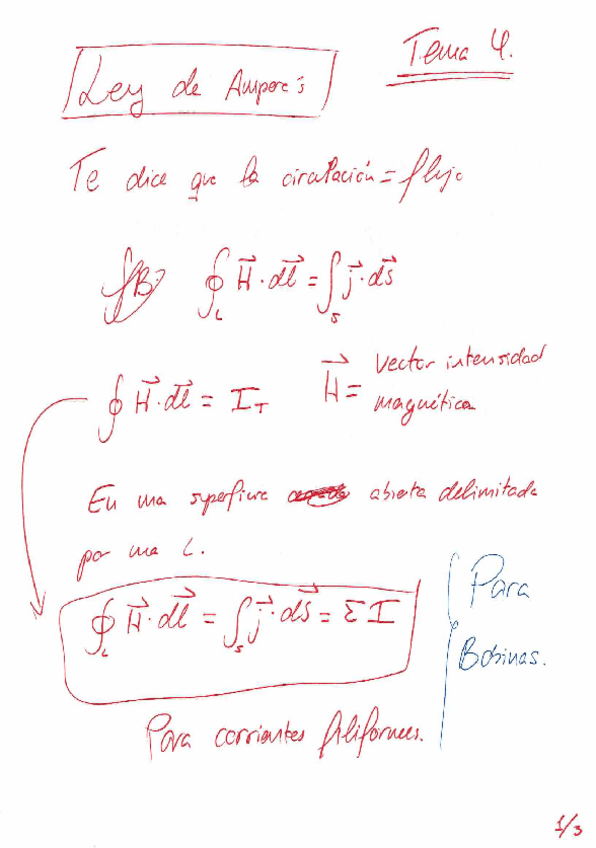 Tema 4.
Ley de Ampere's
Te dice que la circulación = flujo
∮_L H⃗·dl⃗ = ∫_S j⃗·ds⃗
∮ H⃗·dl⃗ = I_T H⃗ = vector intensidad
magnética
En una superficie abierta delimitada
por una L.
∮_L H⃗·dl⃗ = ∫_S j⃗·ds⃗ = Σ I
Para
Bobinas.
Para corrientes filiformes.
1/3